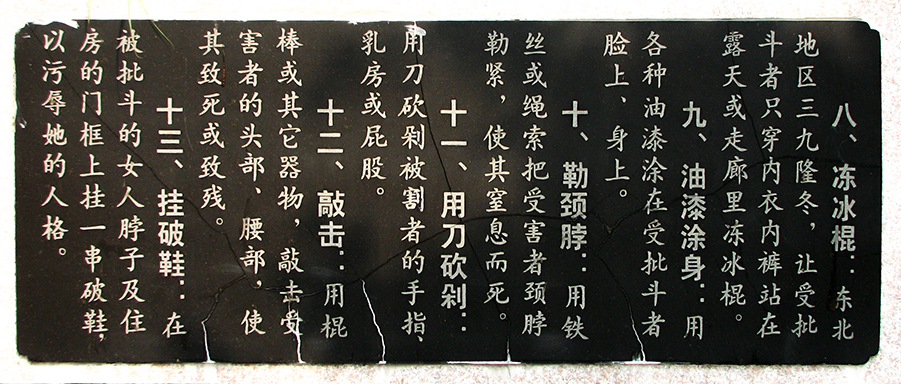 八、冻冰棍：东北
地区三九隆冬，让受批
斗者只穿内衣内裤站在
露天或走廊里冻冰棍。
九、油漆涂身：用
各种油漆涂在受批斗者
脸上、身上。
十、勒颈脖：用铁
丝或绳索把受害者颈脖
勒紧，使其窒息而死。
十一、用刀砍剁：
用刀砍剁被割者的手指、
乳房或屁股。
十二、敲击：用棍
棒或其它器物，敲击受
害者的头部、腰部，使
其致死或致残。
十三、挂破鞋：在
被批斗的女人脖子及住
房的门框上挂一串破鞋，
以污辱她的人格。